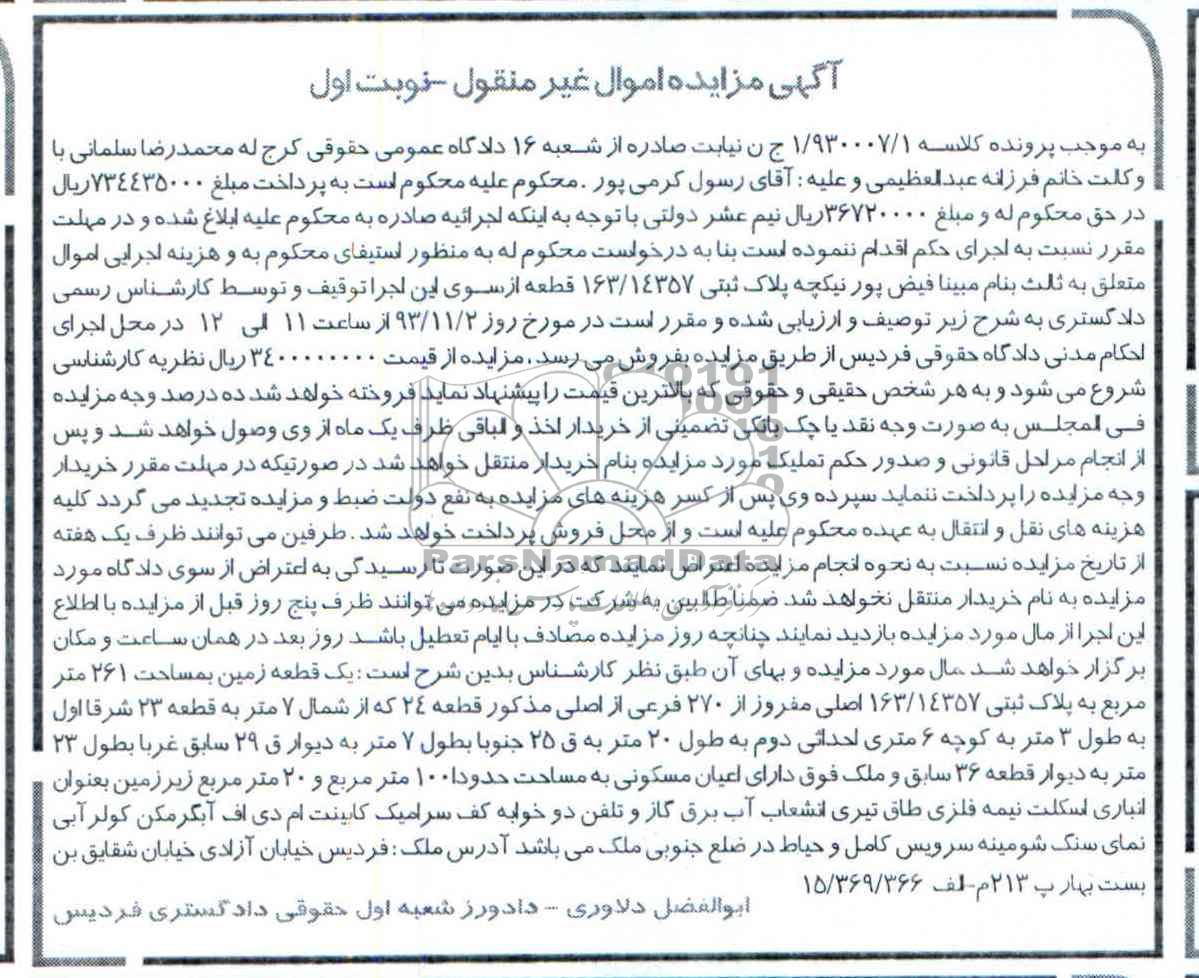 آگهی مزایده اموال غیر منقول -نوبت اول
به موجب پرونده کلاسه ۱/۹۳۰۰۰۷/۱ ج ن نیابت صادره از شعبه ۱۶ دادگاه عمومی حقوقی کرج له محمدرضا سلمانی با
وکالت خانم فرزانه عبدالعظیمی و علیه : آقای رسول کرمی پور . محکوم علیه محکوم است به پرداخت مبلغ ۷۳۴۴۳۵۰۰۰ ریال
در حق محکوم له و مبلغ ۳۶۷۲۰۰۰۰ ریال نیم عشر دولتی با توجه به اینکه اجرائیه صادره به محکوم علیه ابلاغ شده و در مهلت
مقرر نسبت به اجرای حکم اقدام ننموده است بنا به درخواست محکوم له به منظور استیفای محکوم به و هزینه اجرایی اموال
متعلق به ثالث بنام مبینا فیض پور نیکچه پلاک ثبتی ۱۶۳/۱۴۳۵۷ قطعه از سوی این اجرا توقیف و توسط کارشناس رسمی
دادگستری به شرح زیر توصیف و ارزیابی شده و مقرر است در مورخ روز ۹۳/۱۱/۲ از ساعت ۱۱ الی ۱۲ در محل اجرای
احکام مدنی دادگاه حقوقی فردیس از طریق مزایده بفروش می رسد . مزایده از قیمت ۳۴۰۰۰۰۰۰۰۰ ریال نظریه کارشناسی
شروع می شود و به هر شخص حقیقی و حقوقی که بالاترین قیمت را پیشنهاد نماید فروخته خواهد شد ده درصد وجه مزایده
فی المجلس به صورت وجه نقد یا چک بانکی تضمینی از خریدار اخذ و الباقی ظرف یک ماه از وی وصول خواهد شد و پس
از انجام مراحل قانونی و صدور حکم تملیک مورد مزایده بنام خریدار منتقل خواهد شد در صورتیکه در مهلت مقرر خریدار
وجه مزایده را پرداخت ننماید سپرده وی پس از کسر هزینه های مزایده به نفع دولت ضبط و مزایده تجدید می گردد کلیه
هزینه های نقل و انتقال به عهده محکوم علیه است و از محل فروش پرداخت خواهد شد . طرفین می توانند ظرف یک هفته
از تاریخ مزایده نسبت به نحوه انجام مزایده اعتراض نمایند که در این صورت تا رسیدگی به اعتراض از سوی دادگاه مورد
مزایده به نام خریدار منتقل نخواهد شد ضمنا طالبین به شرکت در مزایده می توانند ظرف پنج روز قبل از مزایده با اطلاع
این اجرا از مال مورد مزایده بازدید نمایند چنانچه روز مزایده مصادف با ایام تعطیل باشد روز بعد در همان ساعت و مکان
برگزار خواهد شد مال مورد مزایده و بهای آن طبق نظر کارشناس بدین شرح است : یک قطعه زمین بمساحت ۲۶۱ متر
مربع به پلاک ثبتی ۱۶۳/۱۴۳۵۷ اصلی مفروز از ۲۷۰ فرعی از اصلی مذکور قطعه ۲۴ که از شمال ۷ متر به قطعه ۲۳ شرقا اول
به طول ۳ متر به کوچه ۶ متری احداثی دوم به طول ۲۰ متر به ق ۲۵ جنوبا بطول ۷ متر به دیوار ق ۲۹ سابق غربا بطول ۲۳
متر به دیوار قطعه ۳۶ سابق و ملک فوق دارای اعیان مسکونی به مساحت حدودا ۱۰۰ متر مربع و ۲۰ متر مربع زیرزمین بعنوان
انباری اسکلت نیمه فلزی طاق تیری انشعاب آب برق گاز و تلفن دو خوابه کف سرامیک کابینت ام دی اف آبگرمکن کولر آبی
نمای سنگ شومینه سرویس کامل و حیاط در ضلع جنوبی ملک می باشد آدرس ملک : فردیس خیابان آزادی خیابان شقایق بن
بست بهار پ ۲۱۳ م-الف ۱۵/۳۶۹/۳۶۶
ابوالفضل دلاوری - دادورز شعبه اول حقوقی دادگستری فردیس
ParsNamadData